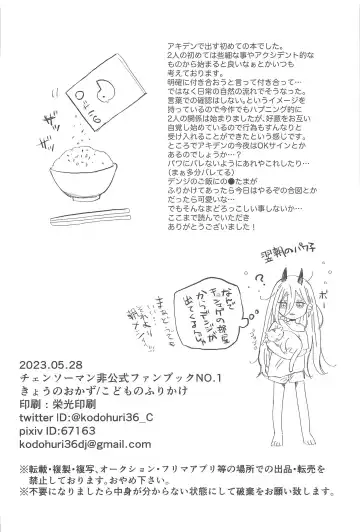 アキデンで出す初めての本でした。
2人の初めては些細な事やアクシデント的な
ものから始まると良いなぁとかいつも
考えております。
明確に付き合おうと言って付き合って…
ではなく日常の自然の流れでそうなった。
言葉での確認はしない。というイメージを
持っているので今作でもハプニング的に
2人の関係は始まりましたが、好意をお互い
自覚し始めているので行為もすんなりと
受け入れることができたという感じです。
ところでアキデンの今夜はOKサインとか
あるのでしょうか…?
パワにバレないようにあれやこれしたり…
(まぁ多分バレてる)
デンジのご飯にの●たまが
ふりかけてあったら今日はやるぞの合図とか
だったら可愛いな…
でもそんなまどろっこしい事しないか…
ここまで読んでいただき
ありがとうございました!
翌朝のパワ子
ボー
なんで
から
デンジが
2023.05.28
チェンソーマン非公式ファンブックNO.1
きょうのおかず/こどものふりかけ
印刷:栄光印刷
twitter ID:@kodohuri36_C
pixiv ID:67163
kodohuri36dj@gmail.com
※転載・複製・複写、オークション・フリマアプリ等の場所での出品・転売を
禁止しております。おやめ下さい。
※不要になりましたら中身が分からない状態にして破棄をお願い致します。